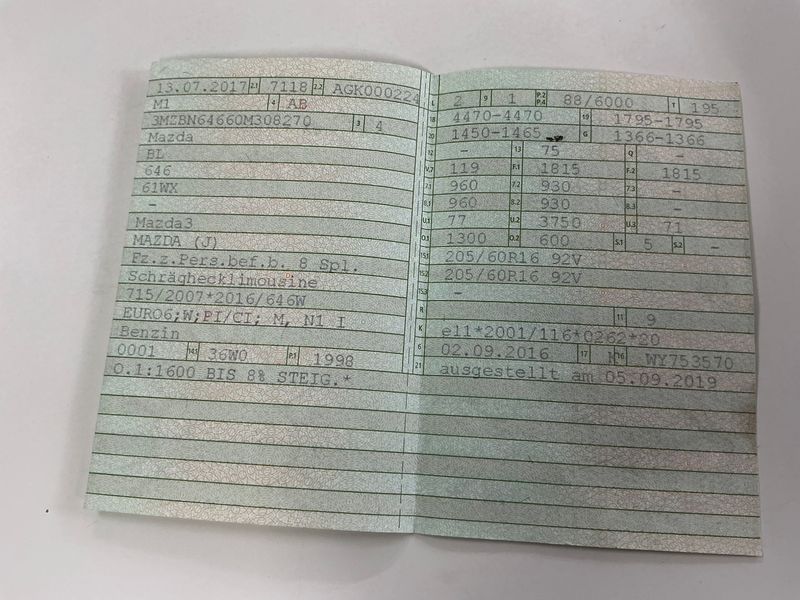 13.07.2017 2.1 7118 2.2 AGK000224
M1 4 AB
3MZBN64660M308270 3 4
Mazda
BL
646
61WX
-
Mazda3
MAZDA (J)
Fz.z.Pers.bef.b. 8 Spl.
Schrägheckl­imousine
715/2007*2016/646W
EURO6;W;PI/CI; M, N1 I
Benzin
0001 14.1 36W0 P.1 1998
O.1:1600 BIS 8% STEIG.*
L 2 9 1 P.2 P.4 88/6000 T 195
18 4470-4470 19 1795-1795
20 1450-1465 G 1366-1366
12 - 13 75 Q -
V.7 119 F.1 1815 F.2 1815
7.1 960 7.2 930 7.3 -
8.1 960 8.2 930 8.3 -
U.1 77 U.2 3750 U.3 71
O.1 1300 O.2 600 S.1 5 S.2 -
15.1 205/60R16 92V
15.2 205/60R16 92V
15.3 -
R 11 9
K e11*2001/116*0262*20
6 02.09.2016 17 K 16 WY753570
21 ausgestellt am 05.09.2019